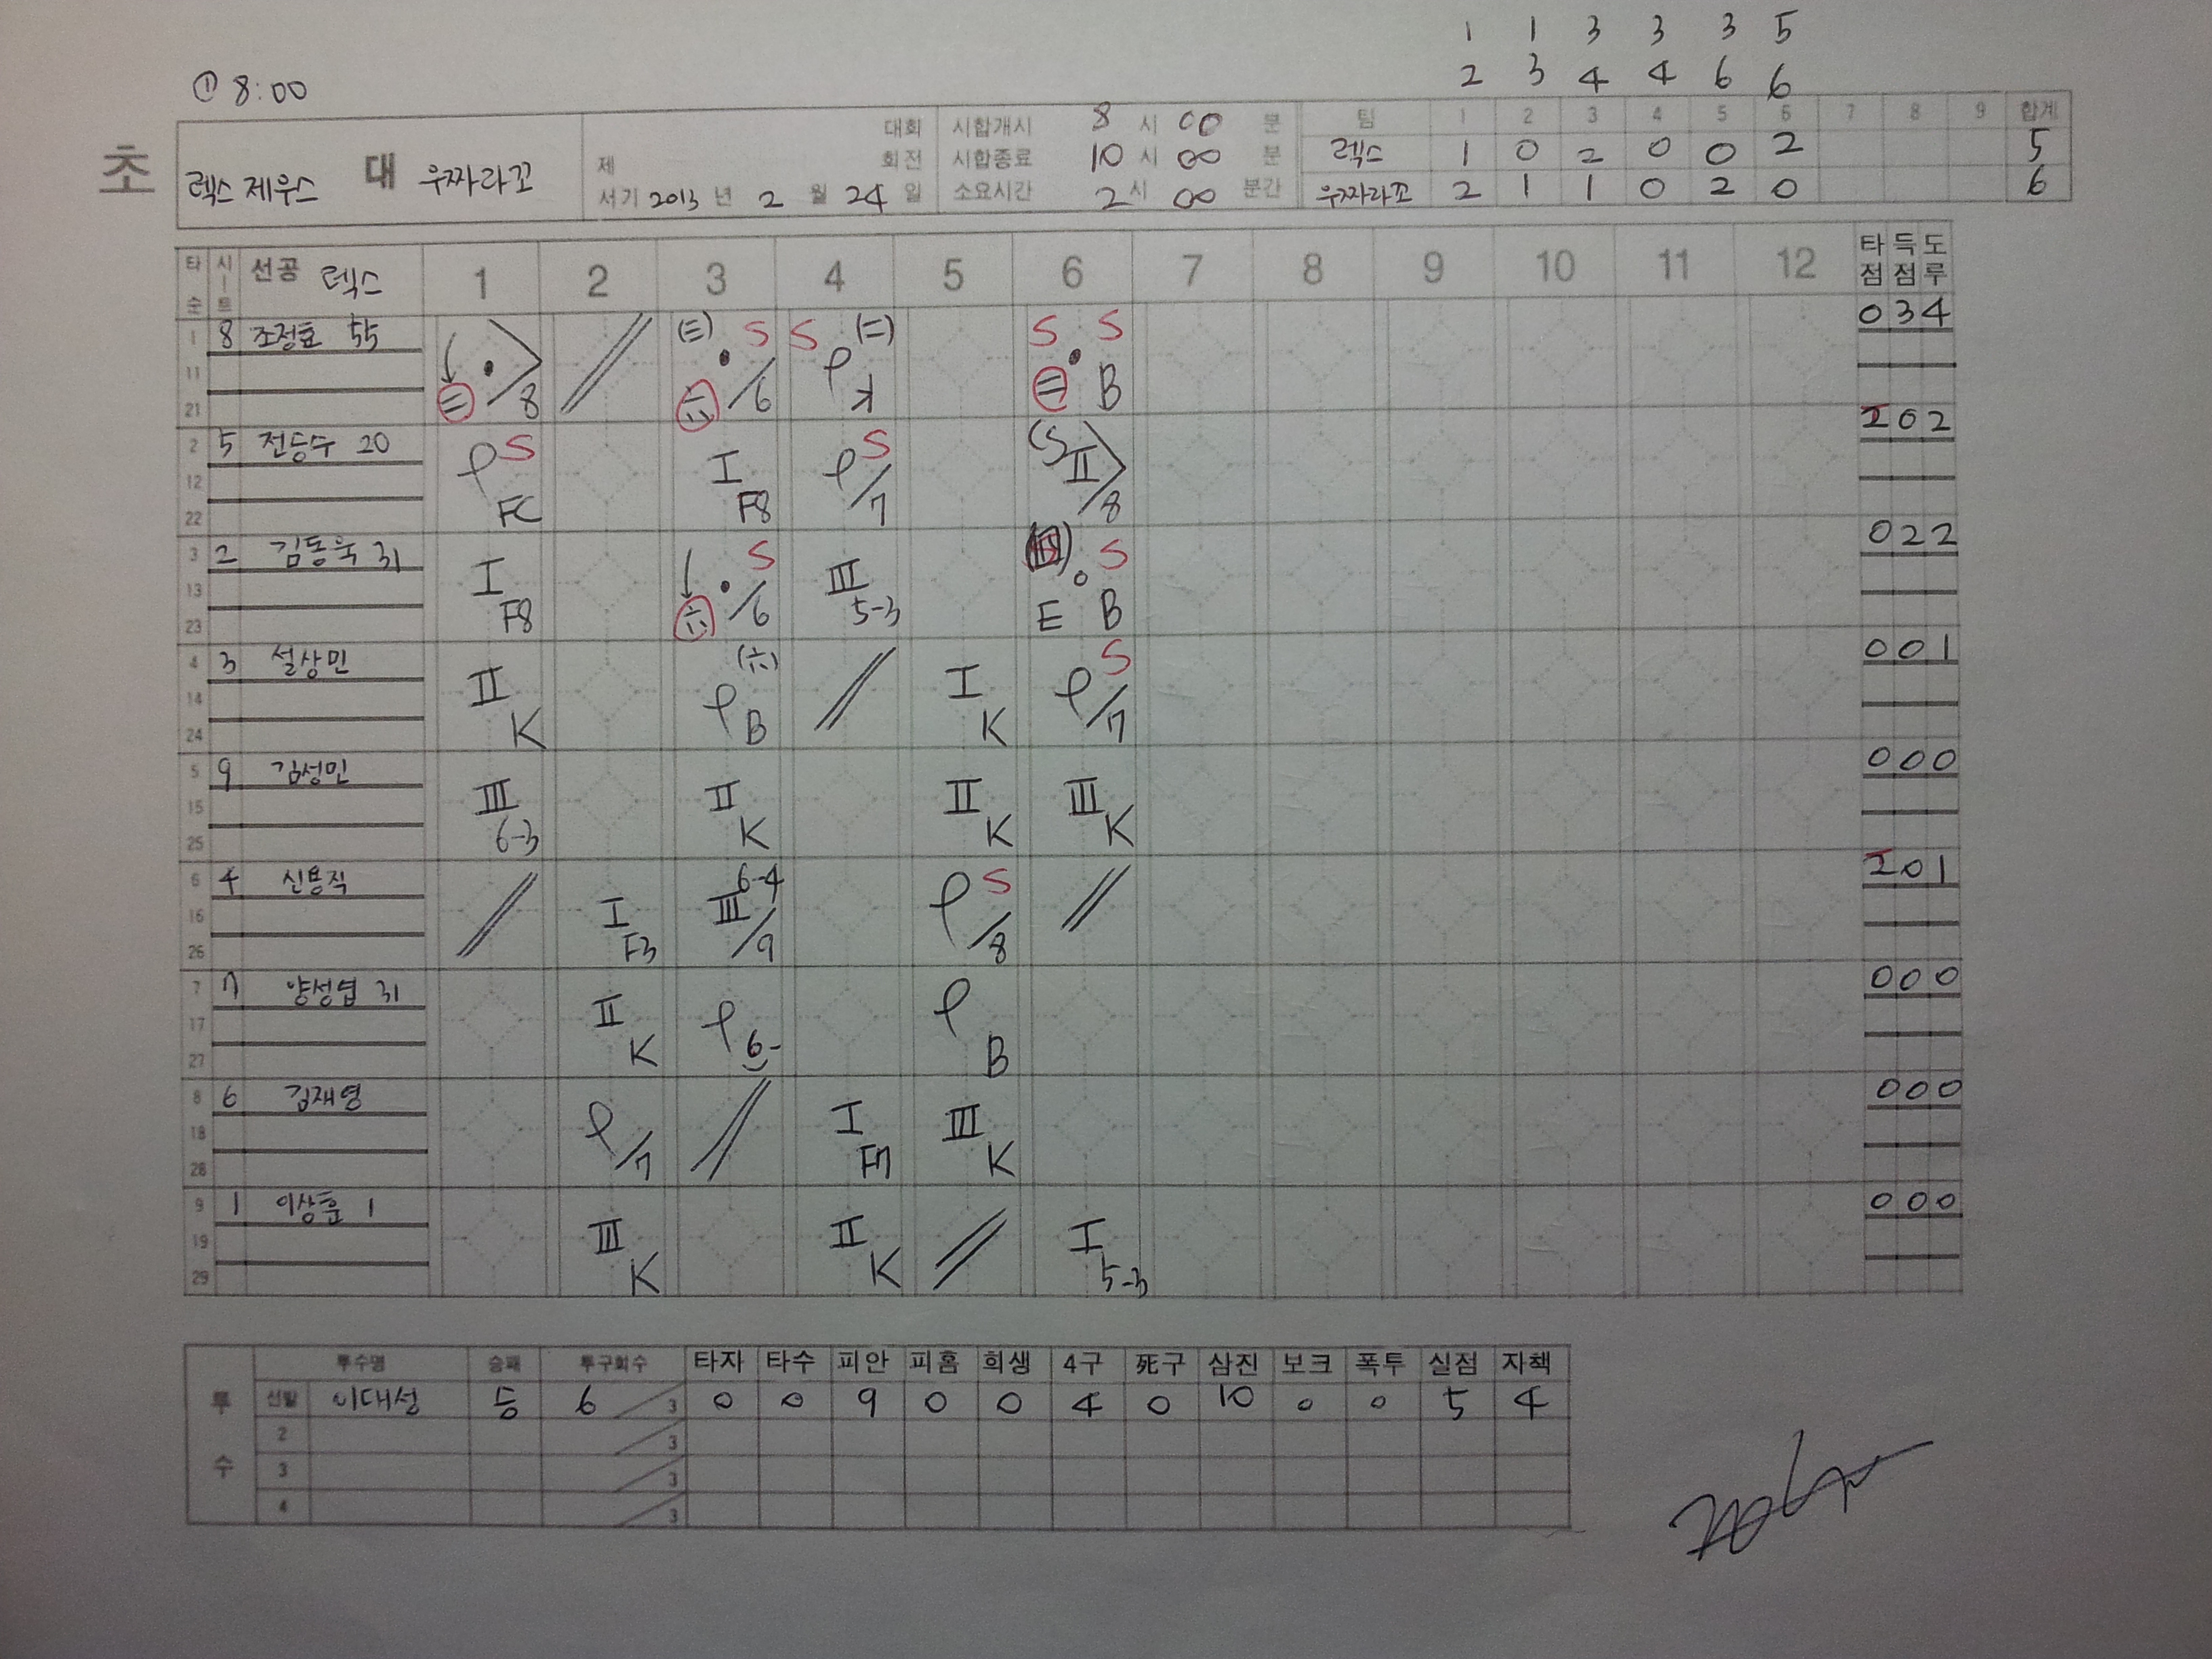 1 1 3 3 3 5
① 8:00
2 3 4 4 6 6
초
렉스 제우스 대 우짜라꼬
대회
제 회전
서기 2013 년 2 월 24 일
시합개시 8 시 00 분
시합종료 10 시 00 분
소요시간 2 시 00 분간
팀 1 2 3 4 5 6 7 8 9 합계
렉스 1 0 2 0 0 2 5
우짜라꼬 2 1 1 0 2 0 6
타순 시트 선공 렉스 1 2 3 4 5 6 7 8 9 10 11 12 타점 득점 도루
1 8 조정호 55 0 3 4
11
21
(三) S S (二) S S
三 /8 六 /6 K 三 B
2 5 전등수 20 0 2
12
22
S I S (S II
FC F8 /7 /8
3 2 김동욱 31 0 2 2
13
23
I S III S
F8 六 /6 5-3 E B
4 3 설상민 0 0 1
14
24
II (六) I S
K B K /7
5 9 김성민 0 0 0
15
25
III II II III
6-3 K K K
6 4 신용직 0 1
16
26
6-4 S
I III
F3 /9 /8
7 7 양성엽 31 0 0 0
17
27
II
K 6- B
8 6 김재영 0 0 0
18
28
I III
/7 F7 K
9 1 이상훈 1 0 0 0
19
29
III II I
K K 5-3
투수 투수명 승패 투구회수 타자 타수 피안 피홈 희생 4구 死구 삼진 보크 폭투 실점 자책
선발 이대성 승 6 /3 0 0 9 0 0 4 0 10 0 0 5 4
2 /3
3 /3
4 /3